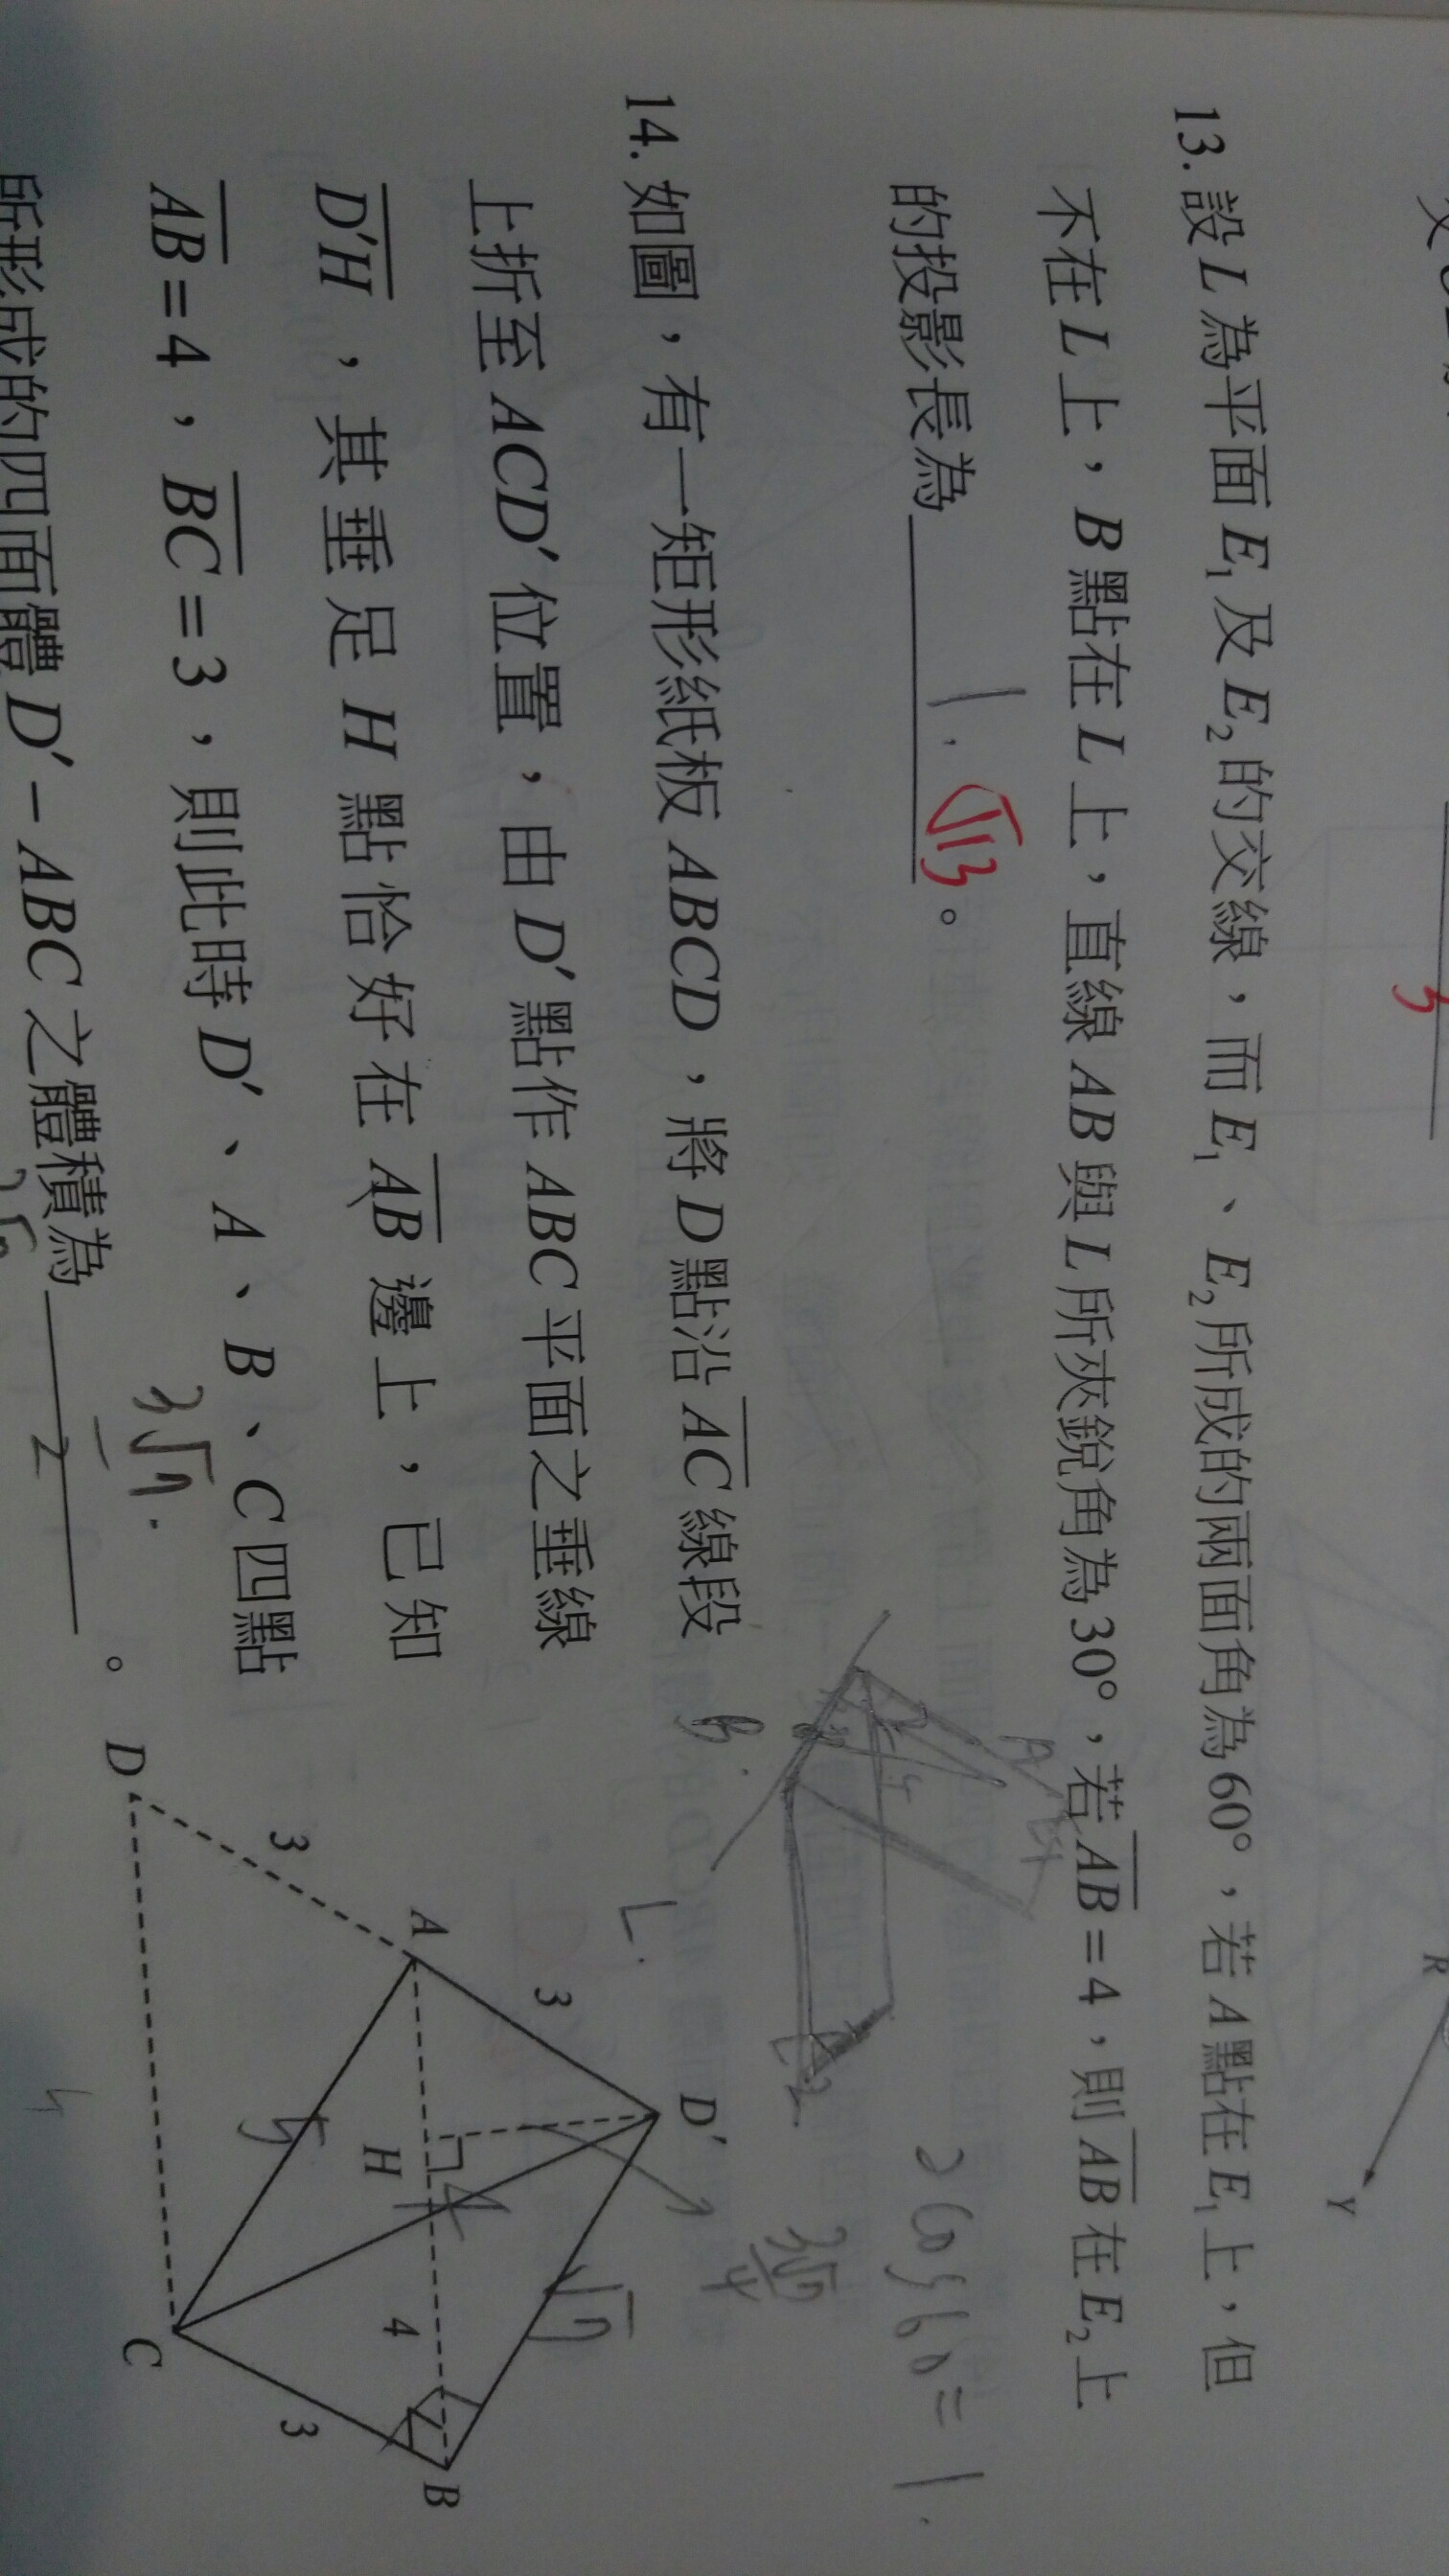 3
R
Y
13. 設 L 為平面 E₁ 及 E₂ 的交線，而 E₁、E₂ 所成的兩面角為 60°，若 A 點在 E₁ 上，但
不在 L 上，B 點在 L 上，直線 AB 與 L 所夾銳角為 30°，若 AB = 4，則 AB 在 E₂ 上
的投影長為 1. √13 。
A
4
B.
L.
2
2cos60=1.
14. 如圖，有一矩形紙板 ABCD，將 D 點沿 AC 線段
上折至 ACD′ 位置，由 D′ 點作 ABC 平面之垂線
D′H，其垂足 H 點恰好在 AB 邊上，已知
AB = 4，BC = 3，則此時 D′、A、B、C 四點
所形成的四面體 D′ − ABC 之體積為 。
3√7
2
D′
3
3√7
4
√7
A
H
4
B
3
5
3
D
C
4